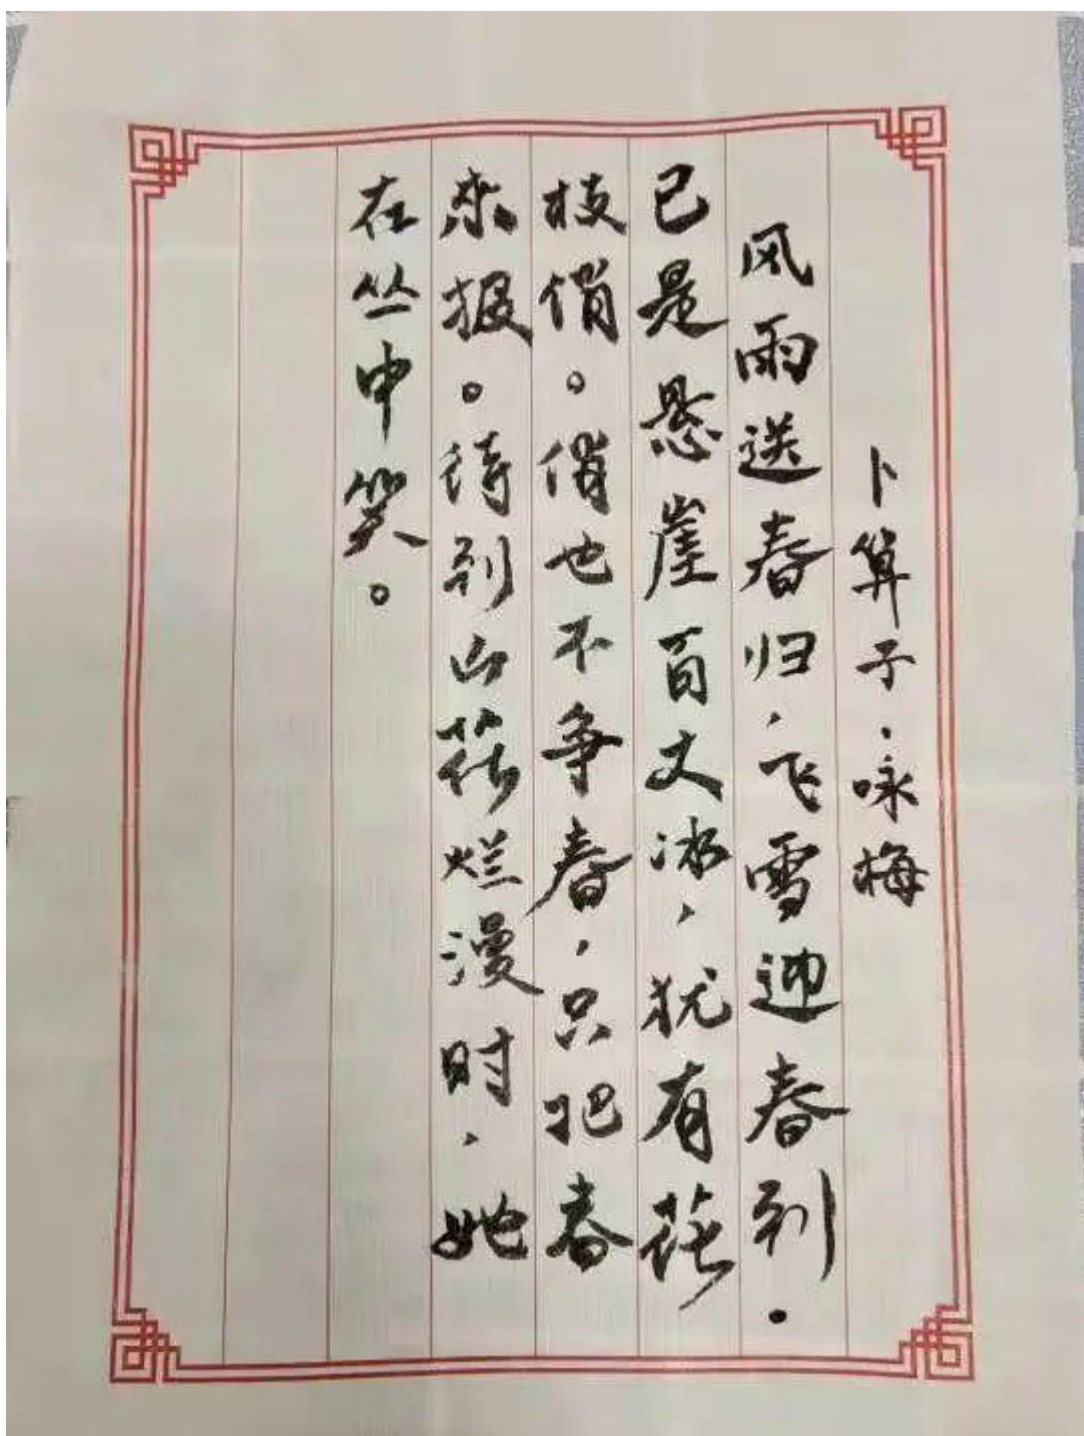 卜算子·咏梅
风雨送春归，飞雪迎春到.
已是悬崖百丈冰，犹有花
枝俏。俏也不争春，只把春
来报。待到山花烂漫时，她
在丛中笑。